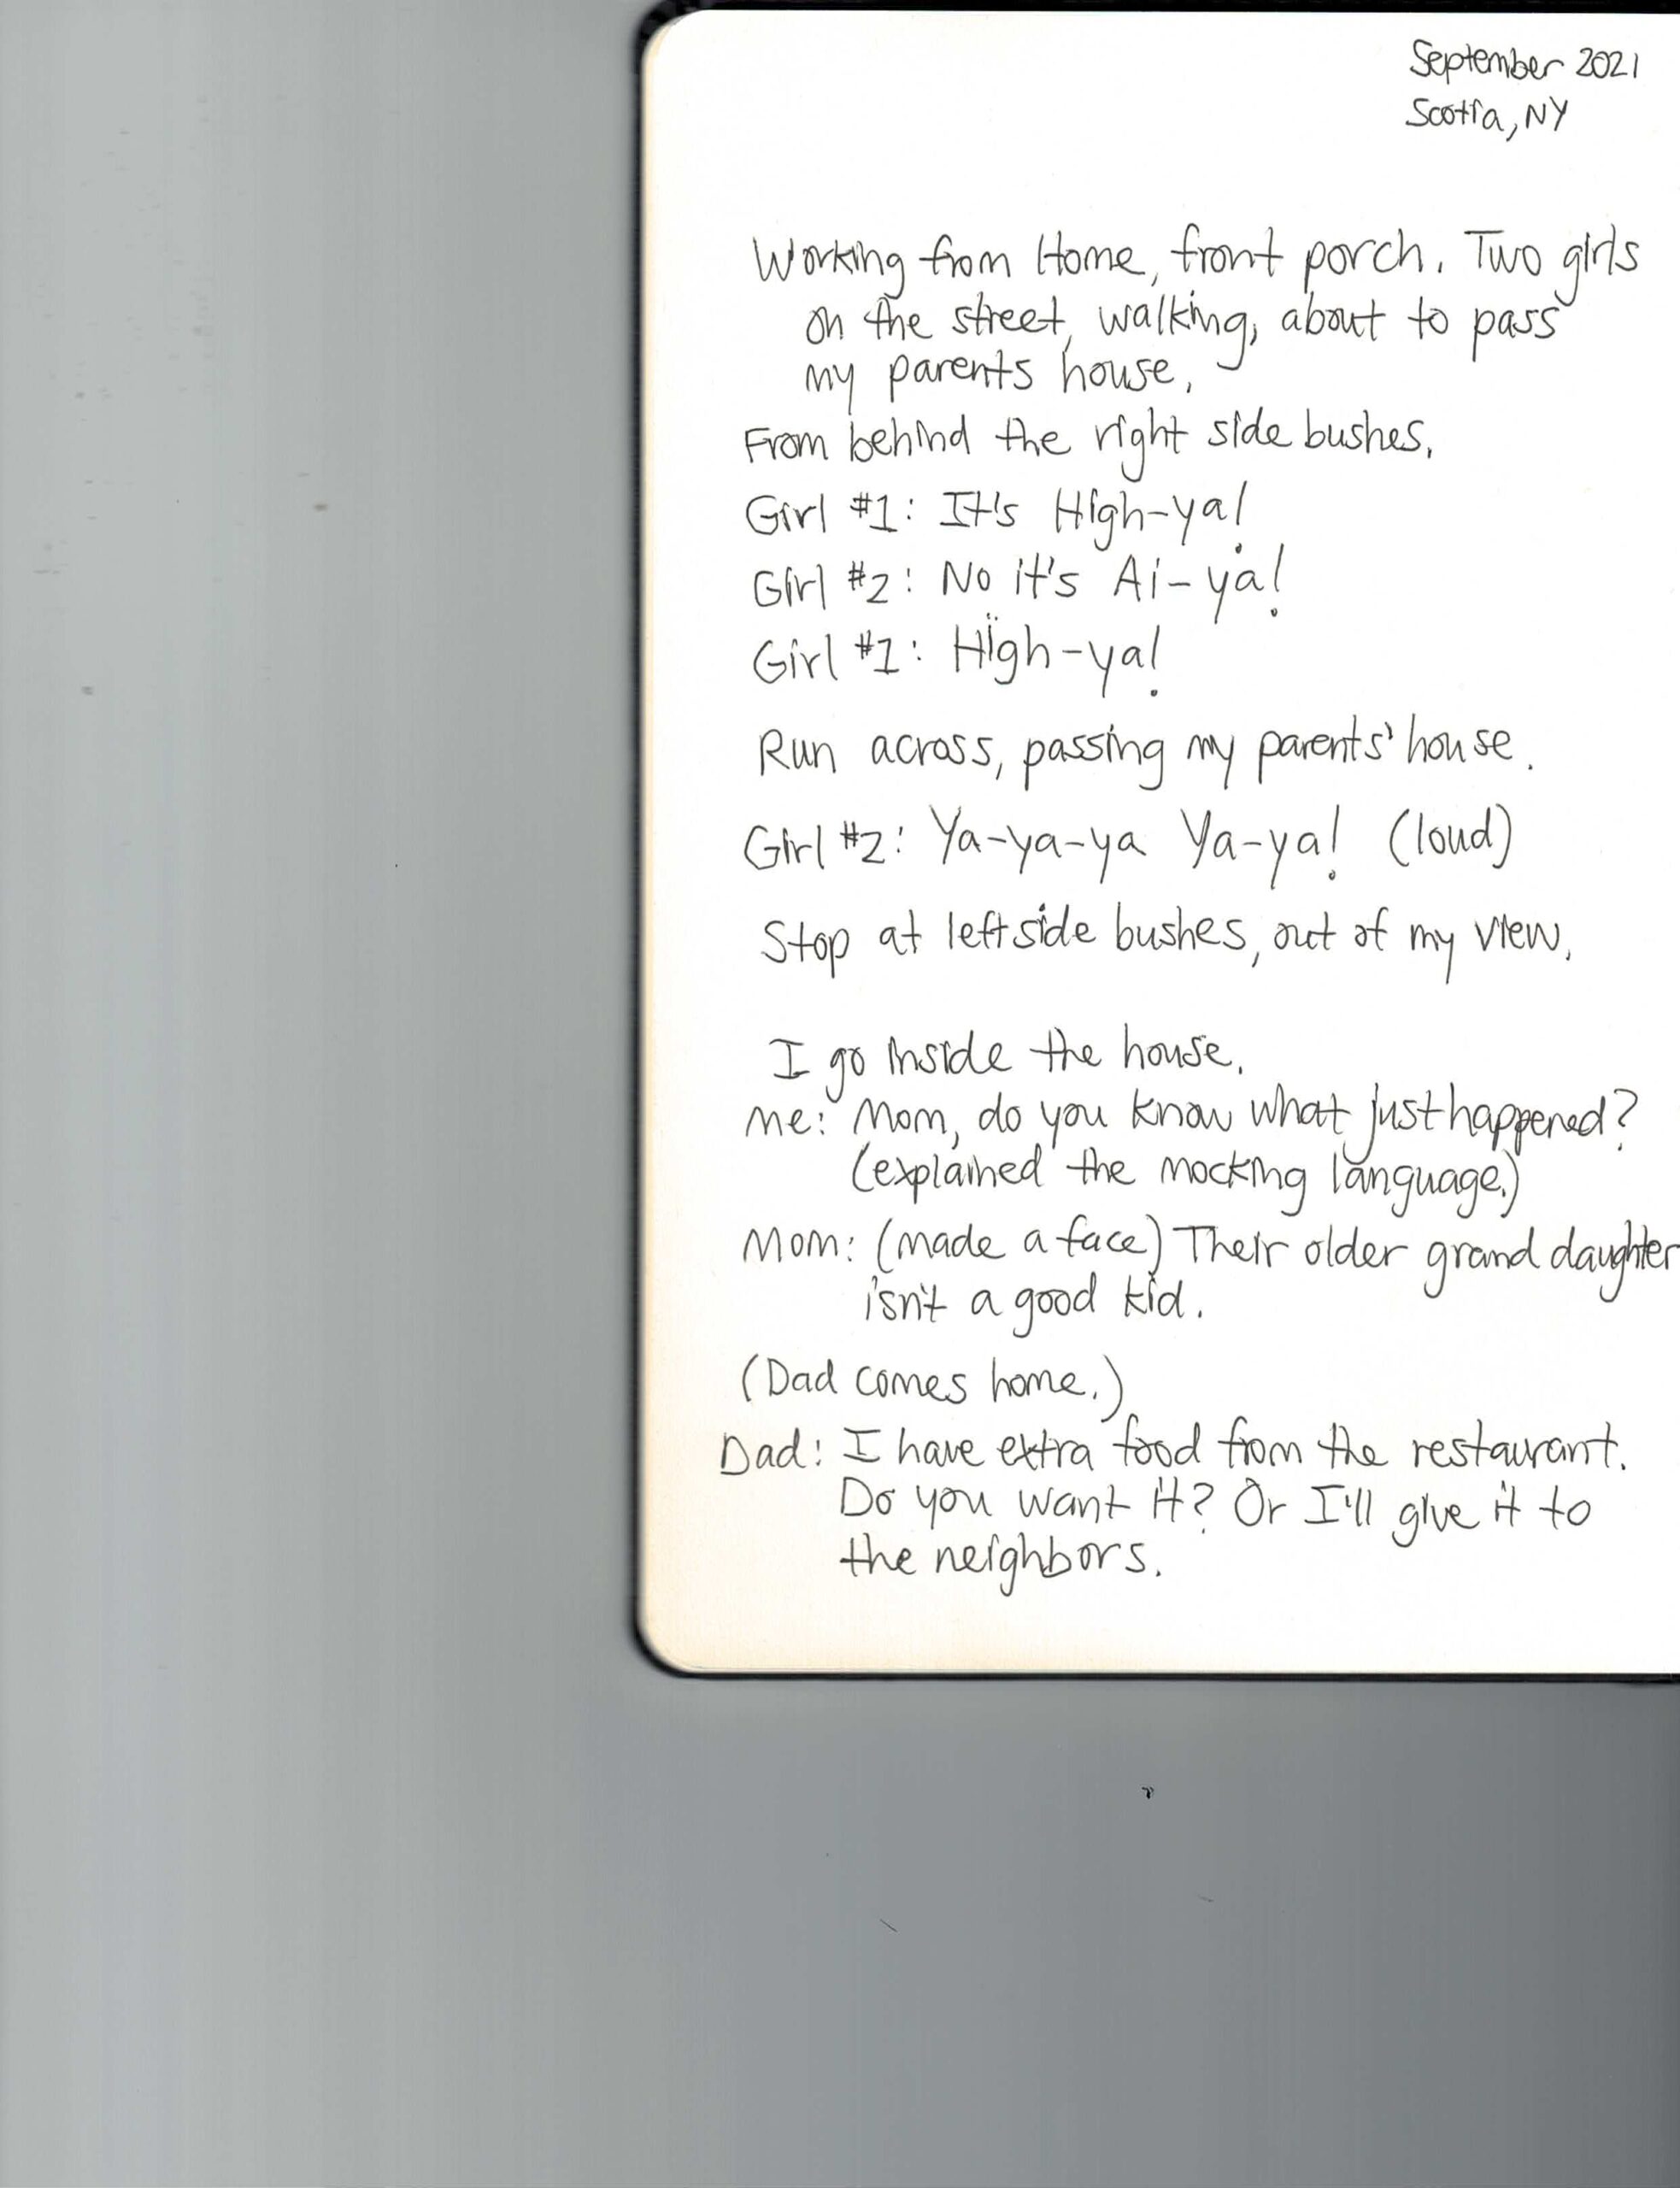 September 2021
Scotia, NY
Working from Home, front porch. Two girls
on the street, walking, about to pass
my parents house.
From behind the right side bushes.
Girl #1: It's High-ya!
Girl #2: No it's Ai-ya!
Girl #1: High-ya!
Run across, passing my parents' house.
Girl #2: Ya-ya-ya Ya-ya! (loud)
Stop at left side bushes, out of my view.
I go inside the house.
Me: Mom, do you know what just happened?
(explained the mocking language.)
Mom: (made a face) Their older grand daughter
isn't a good kid.
(Dad comes home.)
Dad: I have extra food from the restaurant.
Do you want it? Or I'll give it to
the neighbors.